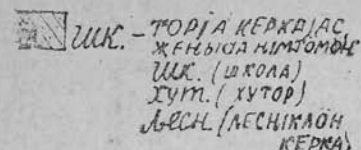 ШК. – ТОРЈА КЕРКАЈАС,
ЖЕНЫДА НІМТӦМӦН
ШК. (ШКОЛА)
ХУТ. (ХУТОР)
ԈЕСН. (ЛЕСНІКЛӦН
КЕРКА)